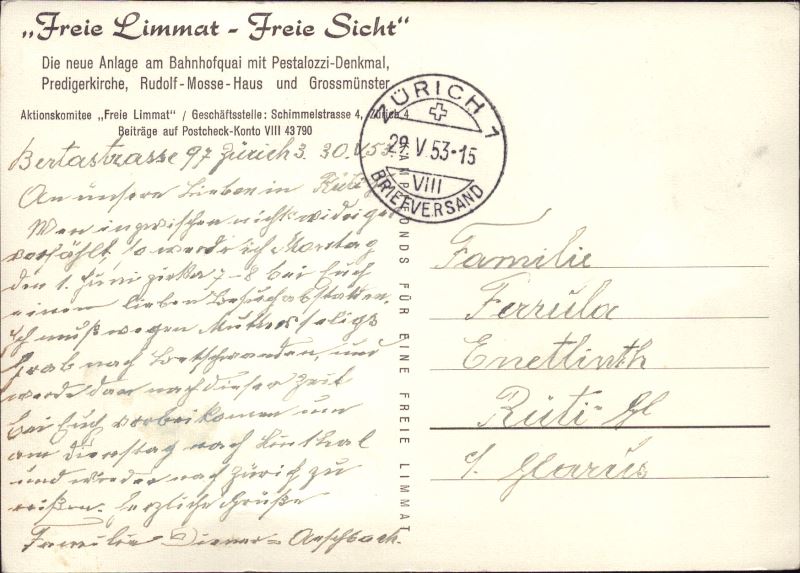 „Freie Limmat - Freie Sicht“
Die neue Anlage am Bahnhofquai mit Pestalozzi-Denkmal,
Predigerkirche, Rudolf-Mosse-Haus und Grossmünster
Aktionskomitee „Freie Limmat“ / Geschäftsstelle: Schimmelstrasse 4, Zürich 4
Beiträge auf Postcheck-Konto VIII 43790
ZÜRICH 1
29. V. 53-15
VIII
BRIEFVERSAND
Bertastrasse 97 Zürich 3. 30. V 53.
An unsere Lieben in Rüti
Wen inzwischen nicht widriges
vorfählt, so werde ich Montag
den 1. Juni zirka 7-8 bei Euch
einen lieben Besuch abstatten.
Ich muß wegen Mutter seligs
Grab nach Betschwanden, und
werde dan nach dieser Zeit
bei Euch vorbeikomen um
am Dienstag nach Linthal
und wieder nach Zürich zu
reißen. Herzliche Grüße
Familie Diener-Aeschbach.
FONDS FÜR EINE FREIE LIMMAT
Familie
Ferrula
Enetlinth
Rüti-Gl
Glarus